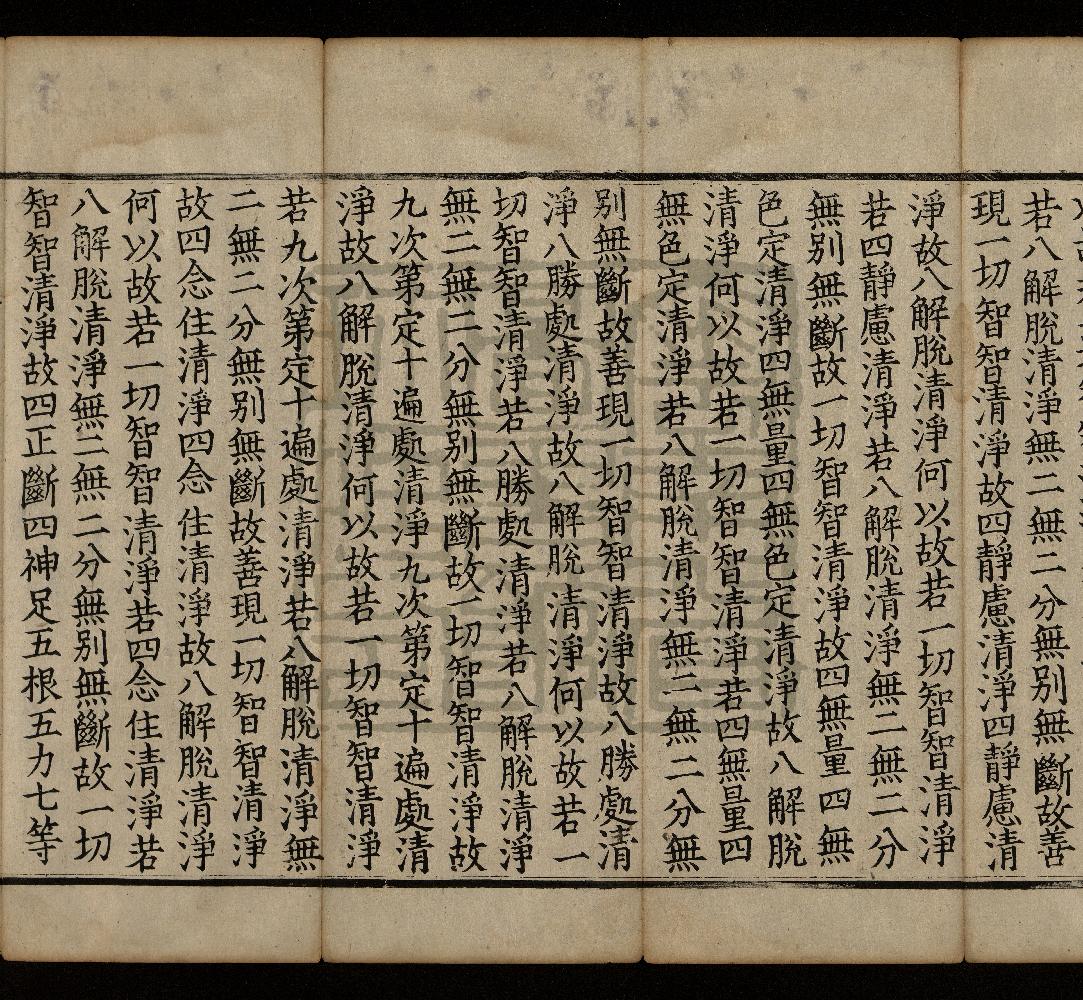 若八解脫清淨無二無二分無別無斷故善
現一切智智清淨故四靜慮清淨四靜慮清
淨故八解脫清淨何以故若一切智智清淨
若四靜慮清淨若八解脫清淨無二無二分
無別無斷故一切智智清淨故四無量四無
色定清淨四無量四無色定清淨故八解脫
清淨何以故若一切智智清淨若四無量四
無色定清淨若八解脫清淨無二無二分無
別無斷故善現一切智智清淨故八勝處清
淨八勝處清淨故八解脫清淨何以故若一
切智智清淨若八勝處清淨若八解脫清淨
無二無二分無別無斷故一切智智清淨故
九次第定十遍處清淨九次第定十遍處清
淨故八解脫清淨何以故若一切智智清淨
若九次第定十遍處清淨若八解脫清淨無
二無二分無別無斷故善現一切智智清淨
故四念住清淨四念住清淨故八解脫清淨
何以故若一切智智清淨若四念住清淨若
八解脫清淨無二無二分無別無斷故一切
智智清淨故四正斷四神足五根五力七等